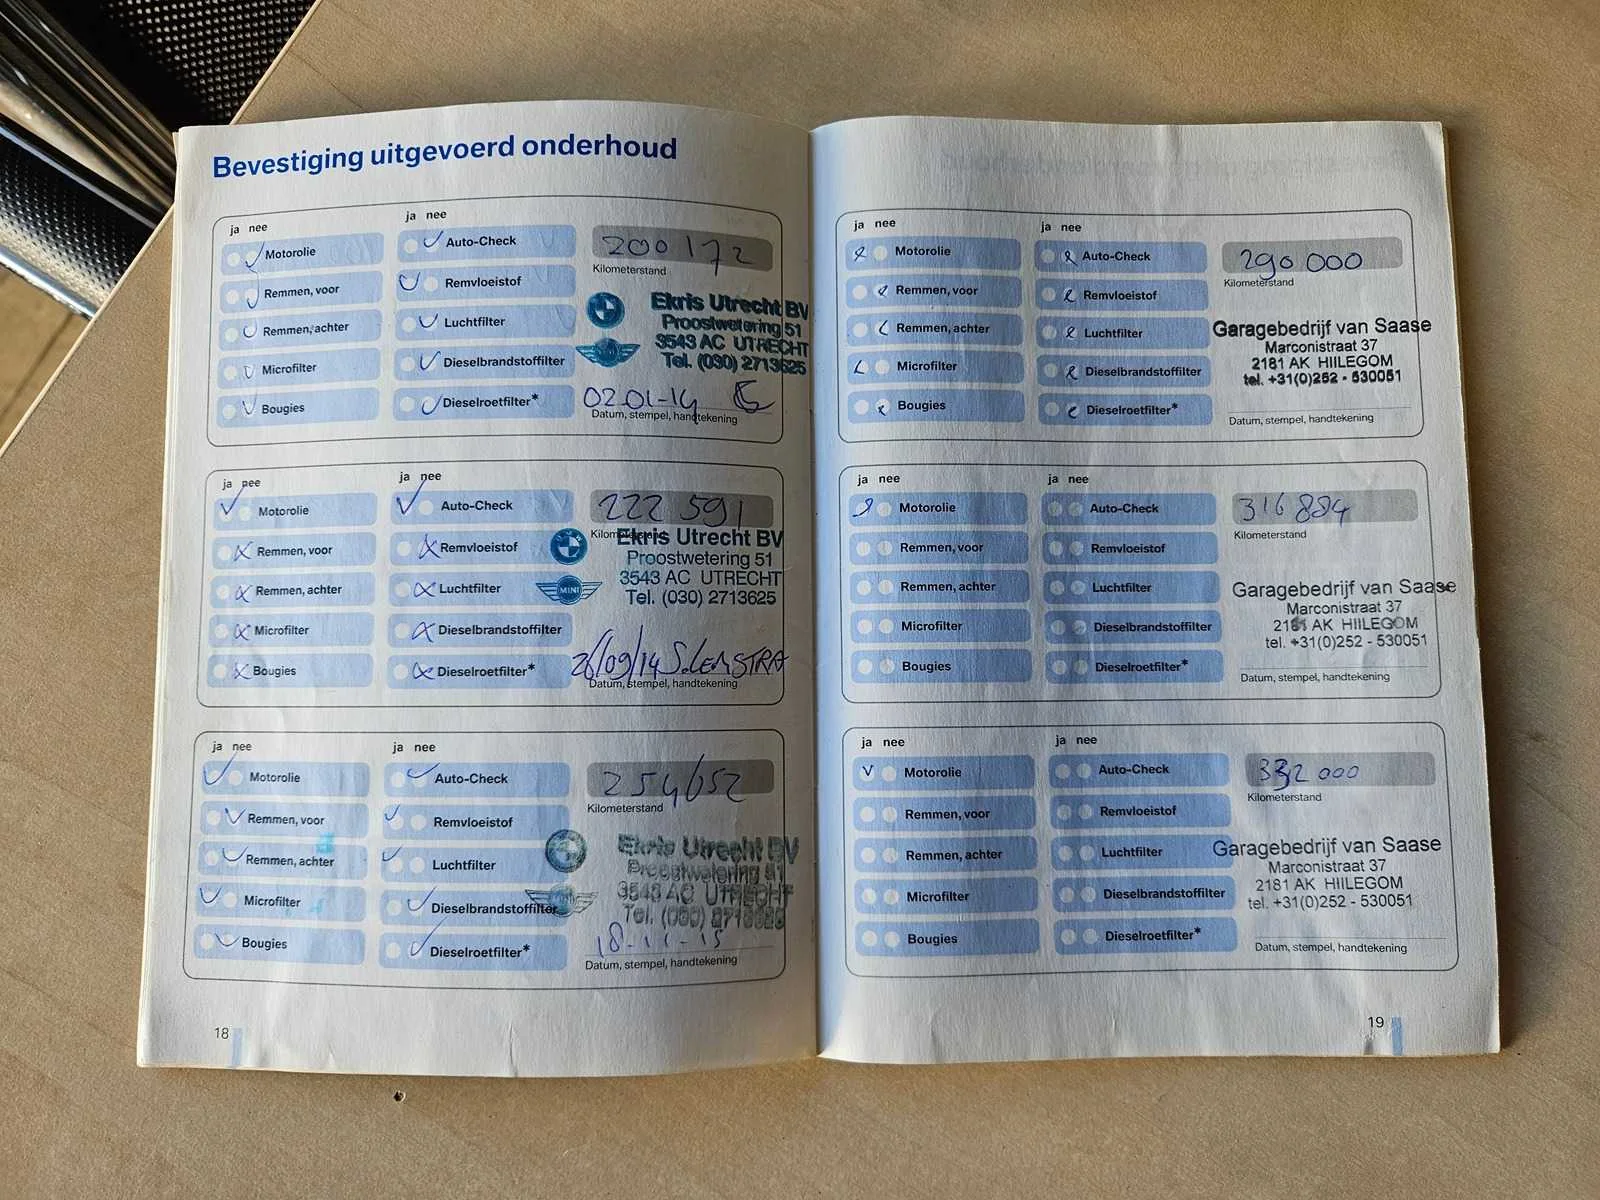 Bevestiging uitgevoerd onderhoud
ja nee
ja nee
Motorolie
Auto-Check
200 172
Kilometerstand
Remmen, voor
Remvloeistof
Remmen, achter
Luchtfilter
Microfilter
Dieselbrandstoffilter
Bougies
Dieselroetfilter*
Ekris Utrecht BV
Proostwetering 51
3543 AC UTRECHT
Tel. (030) 2713625
02-01-14
Datum, stempel, handtekening
ja nee
ja nee
Motorolie
Auto-Check
222 591
Kilometerstand
Remmen, voor
Remvloeistof
Remmen, achter
Luchtfilter
Microfilter
Dieselbrandstoffilter
Bougies
Dieselroetfilter*
Ekris Utrecht BV
Proostwetering 51
3543 AC UTRECHT
Tel. (030) 2713625
MINI
/09/14
Datum, stempel, handtekening
ja nee
ja nee
Motorolie
Auto-Check
254652
Kilometerstand
Remmen, voor
Remvloeistof
Remmen, achter
Luchtfilter
Microfilter
Dieselbrandstoffilter
Bougies
Dieselroetfilter*
Ekris Utrecht BV
Proostwetering 51
3543 AC UTRECHT
Tel. (030) 2713625
18-11-15
Datum, stempel, handtekening
18
ja nee
ja nee
Motorolie
Auto-Check
290 000
Kilometerstand
Remmen, voor
Remvloeistof
Remmen, achter
Luchtfilter
Microfilter
Dieselbrandstoffilter
Bougies
Dieselroetfilter*
Garagebedrijf van Saase
Marconistraat 37
2181 AK HIILEGOM
tel. +31(0)252 - 530051
Datum, stempel, handtekening
ja nee
ja nee
Motorolie
Auto-Check
316 884
Kilometerstand
Remmen, voor
Remvloeistof
Remmen, achter
Luchtfilter
Microfilter
Dieselbrandstoffilter
Bougies
Dieselroetfilter*
Garagebedrijf van Saase
Marconistraat 37
2181 AK HIILEGOM
tel. +31(0)252 - 530051
Datum, stempel, handtekening
ja nee
ja nee
Motorolie
Auto-Check
332 000
Kilometerstand
Remmen, voor
Remvloeistof
Remmen, achter
Luchtfilter
Microfilter
Dieselbrandstoffilter
Bougies
Dieselroetfilter*
Garagebedrijf van Saase
Marconistraat 37
2181 AK HIILEGOM
tel. +31(0)252 - 530051
Datum, stempel, handtekening
19